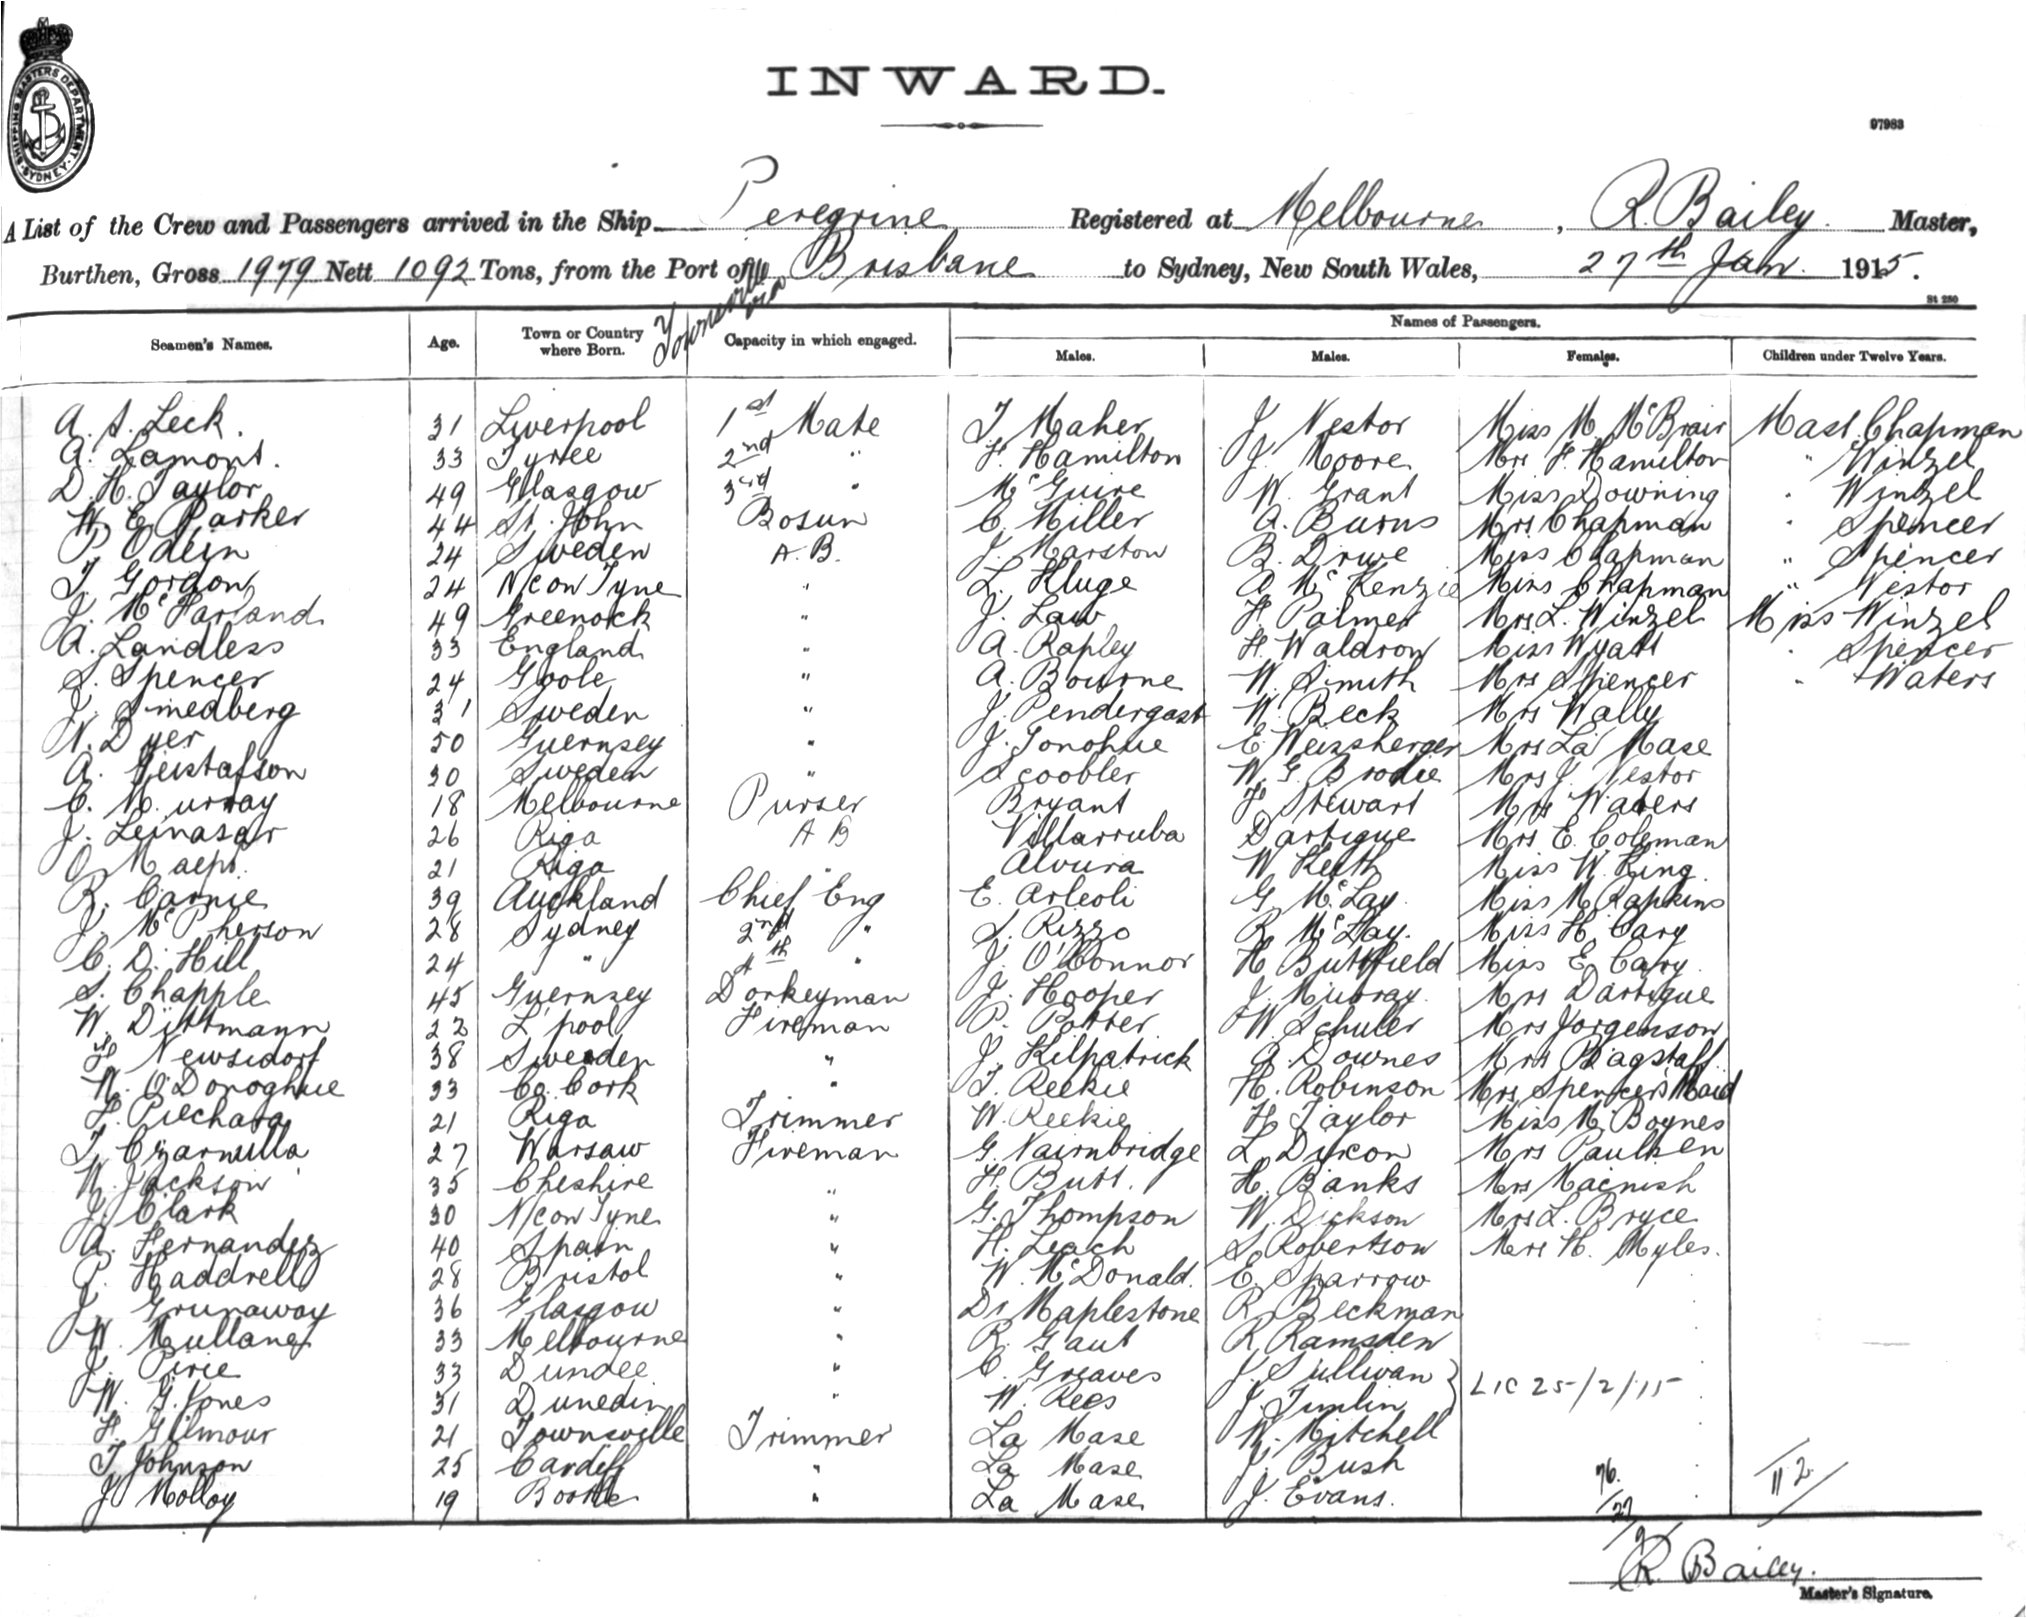 SHIPPING MASTERS DEPARTMENT · SYDNEY ·
INWARD.
97983
A List of the Crew and Passengers arrived in the Ship Peregrine Registered at Melbourne, R. Bailey. Master,
Burthen, Gross 1979 Nett 1092 Tons, from the Port of Townsville via Brisbane to Sydney, New South Wales, 27th Jan. 1915.
St 250
Seamen's Names. Age. Town or Country where Born. Capacity in which engaged. Names of Passengers.
Males. Males. Females. Children under Twelve Years.
A. S. Leck. 31 Liverpool 1st Mate T. Maher J. Nestor Miss M. McBrair Mast. Chapman
A. Lamont. 33 Tyree 2nd " F. Hamilton J. Moore Mrs F. Hamilton " Winzel
D. H. Taylor 49 Glasgow 3rd " McGuire W. Grant Miss Downing " Winzel
W. E. Parker 44 St. John Bosun C. Miller A. Burns Mrs Chapman " Spencer
P. Odein 24 Sweden A.B. J. Marston B. Drwe Miss Chapman " Spencer
T. Gordon 24 N/C on Tyne " L. Kluge A McKenzie Miss Chapman " Nestor
J. McFarland 49 Greenock " J. Law F. Palmer Mrs L. Winzel Miss Winzel
A. Landless 33 England " A. Rapley H. Waldron Miss Wyatt " Spencer
S. Spencer 24 Goole " A. Bourne W. Smith Mrs Spencer " Waters
J. Smedberg 31 Sweden " J. Pendergast W. Beck Mrs Wally
N. Dyer 50 Guernsey " J. Tonohue E. Weizsberger Mrs La Mase
A. Gustafson 30 Sweden " Scoobler W. G. Brodie Mrs J. Nestor
C. Murray 18 Melbourne Purser Bryant F Stewart Mrs Waters
J. Leinasar 26 Riga A B Villarruba Dartigue Mrs E. Coleman
O. Maepi 21 Riga " Alvura W Keith Miss W. King
R. Carnie 39 Auckland Chief Eng E. Arleoli G. McLay Miss M Rapkins
J. McPherson 28 Sydney 2nd " S. Rizzo R McLay. Miss H. Cary
C. D. Hill 24 " 4th " J. O'Connor H Buttfield Miss E. Cary.
S. Chapple 45 Guernsey Donkeyman J. Hooper J. Murray. Mrs Dartigue
W. Dittmann 22 L'pool Fireman P. Potter W. Schuler Mrs Jorgenson
F Newsidorf 38 Sweden " J. Kilpatrick A. Downes Mrs Bagstaff
W. O'Donoghue 33 Co. Cork " T. Reekie H. Robinson Mrs Spencers Maid
F. Piechara 21 Riga Trimmer W. Reekie H. Taylor Miss M. Boynes
T. Czarnilla 27 Warsaw Fireman G. Nairnbridge L. Dixon Mrs Paulken
W. Jackson 35 Cheshire " H. Butt. H. Banks Mrs Macnish
J. Clark 30 N/C on Tyne " G. Thompson W. Dickson Mrs L. Bryce
A. Fernandez 40 Spain " H. Leach S. Robertson Mrs H. Myles.
P. Haddrell 28 Bristol " W. McDonald. E. Sparrow
J. Grunaway 36 Glasgow " Dr Maplestone R. Beckman
W. Mullaney 33 Melbourne " R. Gaut R. Ramsden
J. Pirie 33 Dundee " C. Greaves J. Sullivan
W. G. Jones 31 Dunedin " W. Rees J. Timlin } LIC 25/2/15
H. Gilmour 21 Townsville Trimmer La Mase W. Mitchell
T Johnson 25 Cardiff " La Mase J. Bush
J Molloy 19 Bootle " La Mase J. Evans.
76. 27 9 112
R. Bailey.
Master's Signature.